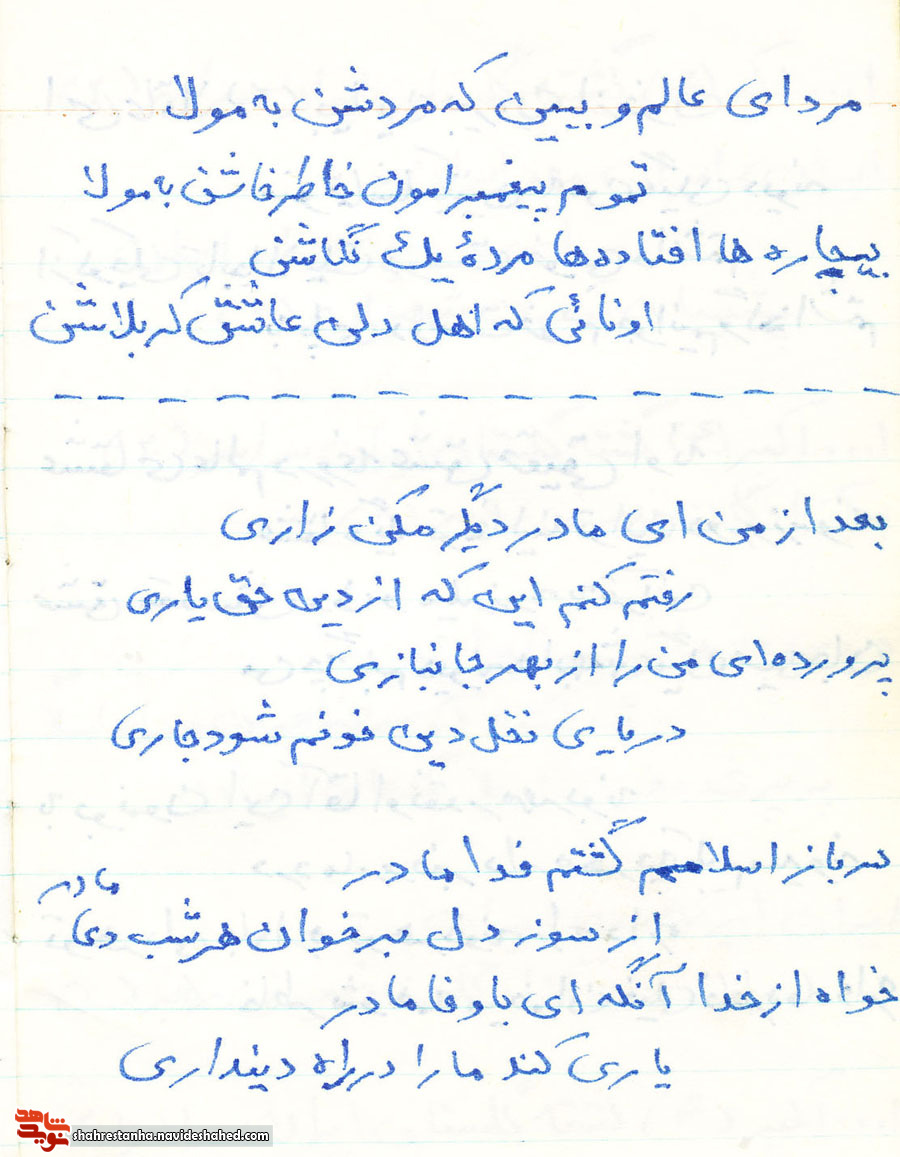 مردای عالم و ببین که مردشن به مولا
تموم پیغمبرامون خاطرخاشن به مولا
بیچاره ها افتاده ها مردۀ یک نگاشن
اونائی که اهل دلن عاشق کربلاشن
بعد از من ای مادر دیگر مکن زاری
رفتم کنم این که از دین حق یاری
پرورده ای من را از بهر جانبازی
در پای نقل دین خونم شود جاری
سرباز اسلامم گشتم فدا مادر
از سوز دل برخوان هر شب دعا مادر
خواه از خدا آنگه ای باوفا مادر
یاری کند ما را در راه دینداری
شاهد
نوید
shahrestanha.navideshahed.com